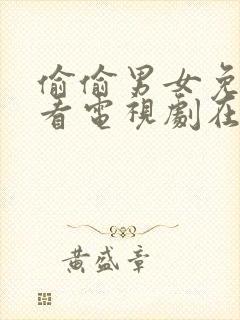 偷偷男女免
看電視劇在
黃盛章